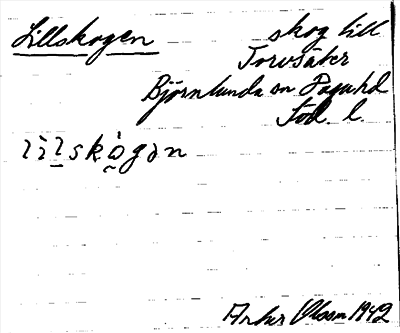 Lillskogen
skog till
Torvsäter
Björnlunda sn Daga hd
Söd. l.
lìlskògən
Arher Olsson 1942